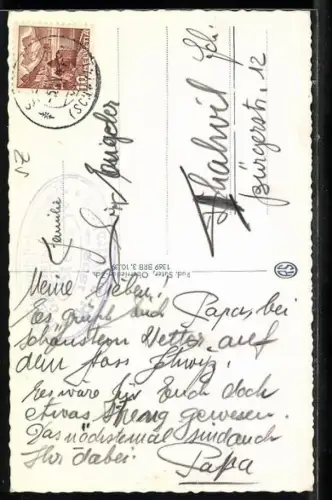 Familie
Thalwil
Bürgerstr. 12
1369 BRB 3.10.39
Meine Lieben!
Es grüßt Euch Papa, bei
schönstem Wetter auf
dem
Es wäre für Euch doch
etwas streng gewesen.
Das nächstemal sind auch
Ihr dabei.
Papa